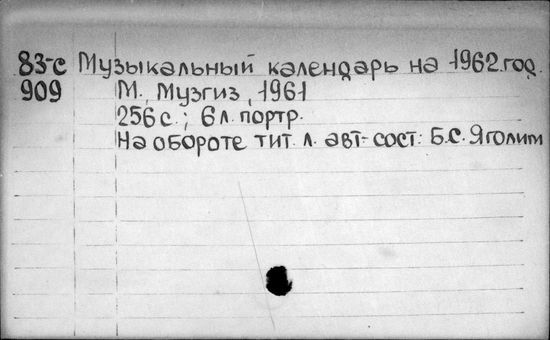 83-с Музыкальный календарь на 1962 год.
909 М., Музгиз, 1961
256 с.; 6 л. портр.
На обороте тит. л. авт.-сост.: Б.С. Яголим